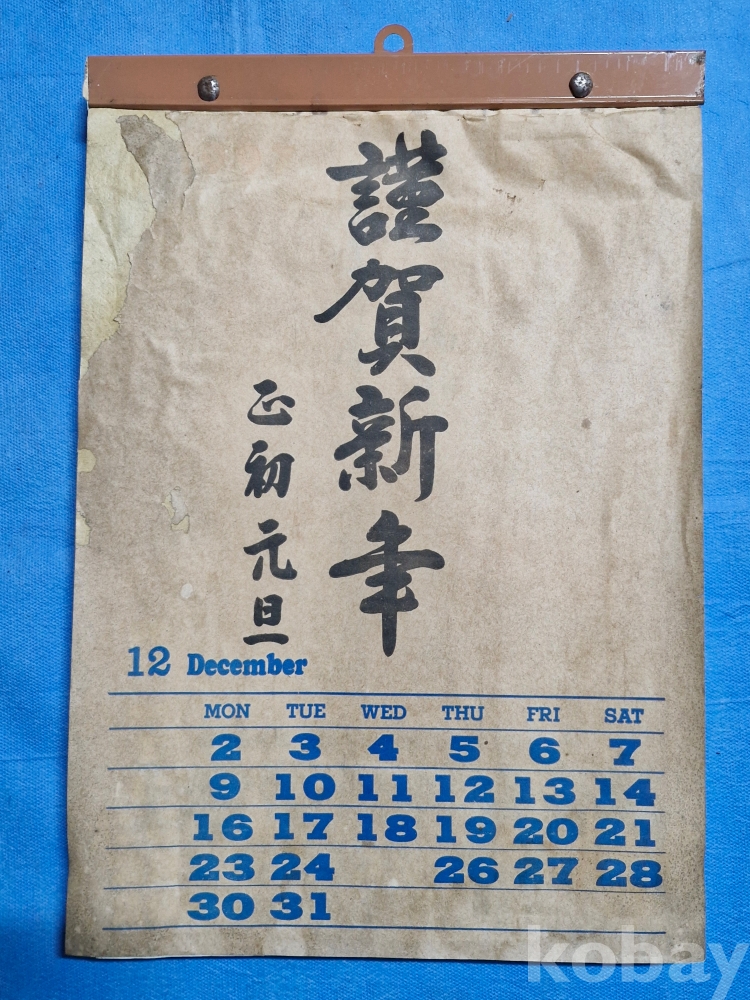 謹賀新年
正初 元旦
12 December
MON TUE WED THU FRI SAT
2 3 4 5 6 7
9 10 11 12 13 14
16 17 18 19 20 21
23 24 26 27 28
30 31
kobay